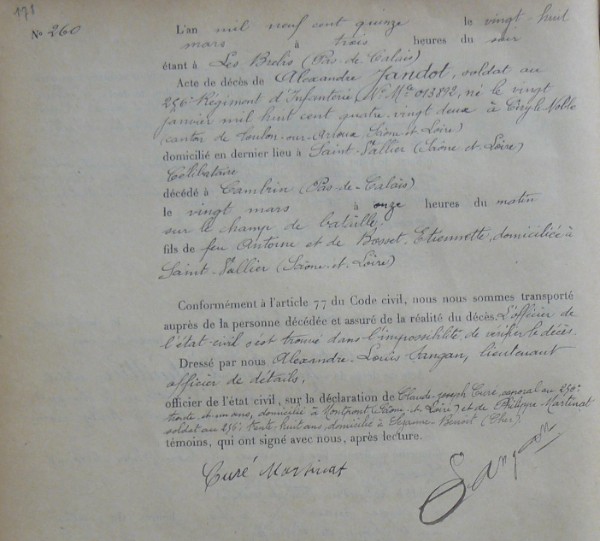 171
N° 260
L'an mil neuf cent quinze le vingt-huit
mars à trois heures du soir
étant à Les Brebis (Pas-de-Calais)
Acte de décès de Alexandre Jandot, soldat au
256e Régiment d'Infanterie (N° Mle 013812, né le vingt
janvier mil huit cent quatre-vingt deux à Ciry-le-Noble
(canton de Toulon-sur-Arroux Saône et Loire)
domicilié en dernier lieu à Saint-Vallier (Saône-et-Loire)
Célibataire
décédé à Cambrin (Pas-de-Calais)
le vingt mars à onze heures du matin
sur le champ de bataille,
fils de feu Antoine et de Bosset Etiennette, domiciliée à
Saint-Vallier (Saône-et-Loire)
Conformément à l'article 77 du Code civil, nous nous sommes transporté
auprès de la personne décédée et assuré de la réalité du décès. L'officier de
l'état civil s'est trouvé dans l'impossibilité de vérifier le décès.
Dressé par nous Alexandre-Louis Sangan, lieutenant
officier de détails,
officier de l'état civil, sur la déclaration de Claude-Joseph Curé, caporal au 256e
trente et un ans, domicilié à Montpont (Saône-et-Loire) et de Philippe Martinat
soldat au 256e trente-huit ans, domicilié à (Cher).
témoins, qui ont signé avec nous, après lecture.
Curé Martinat Sangan